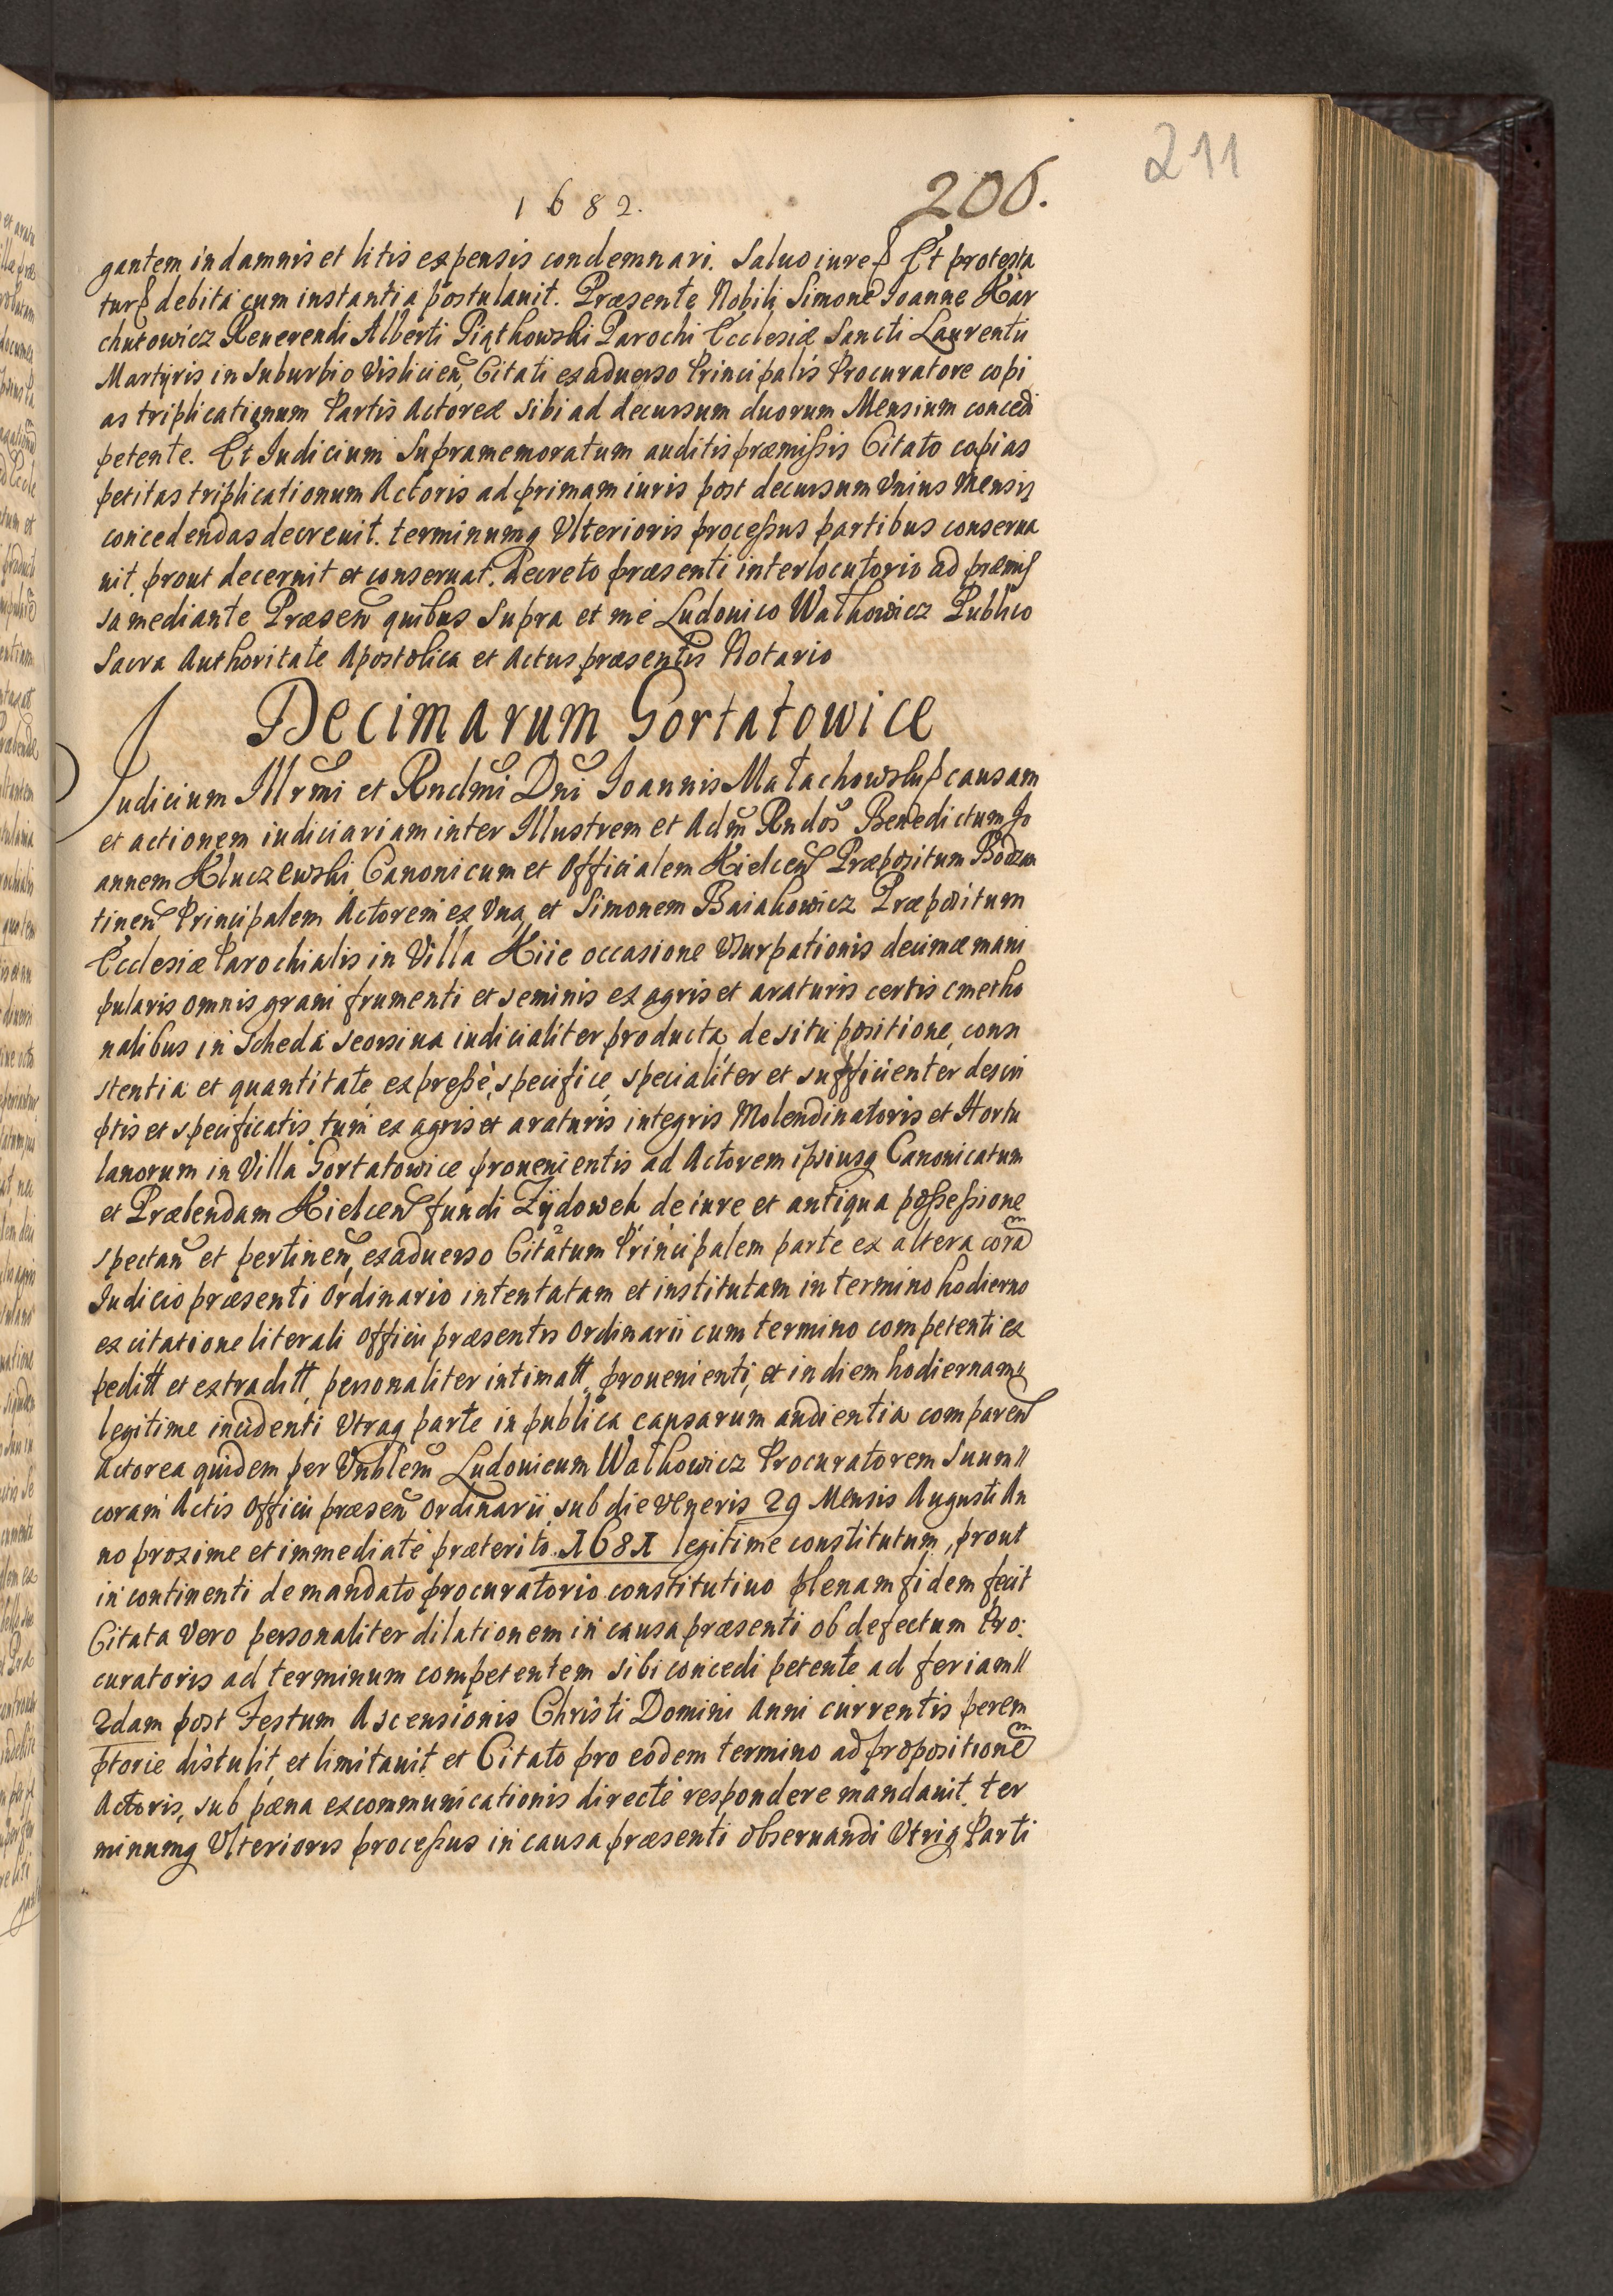 211
1682.
206.
gantem in damnis et litis expensis condemnari. Saluo iure Et protesta
tur debita cum instantia postulauit. Præsente Nobili Simone Ioanne Kar
chutowicz Reuerendi Alberti Piąthowski Parochi Ecclesiæ Sancti Laurentii
Martÿris in Suburbio Visliciens Citati exaduerso Principalis Procuratore copi
as triplicationum Partis Actoreæ sibi ad decursum duorum Mensium concedi
petente. Et Iudicium Supramemoratum auditis præmissis Citato copias
petitas triplicationum Actoris ad primam iuris post decursum Vnius Mensis
concedendas decreuit. terminumq Vlterioris processus partibus conserua
uit, prout decernit et conseruat. Decreto præsenti interlocutorio ad præmis
sa mediante Præsen quibus Supra et me Ludouico Wałkowicz Publico
Sacra Authoritate Apostolica et Actus præsentis Notario
Decimarum Gortatowice
Iudicium Illrmi et Rndmi Dni Ioannis Małachowski causam
et actionem iudiciariam inter Illustrem et Adm Rndos Benedictum Jo
annem Kluczewski Canonicum et Officialem Kielcen Præpositum Bodzan
tinen Principalem Actorem ex Vna, et Simonem Baiakowicz Præpositum
Ecclesiæ Parochialis in Villa Kiie occasione Vsurpationis decimæ mani
pularis omnis grani frumenti et seminis ex agris et araturis certis cmetho
nalibus in Scheda seorsiua iudicialiter producta, de situ positione, consi
stentia et quantitate expressè, specifice, specialiter et sufficienter descri
ptis et specificatis tum ex agris et araturis integris Molendinatoris et Hortu
lanorum in Villa Gortatowice prouenientis ad Actorem ipsiusq Canonicatum
et Præbendam Kielcen fundi Zÿdowek de iure et antiqua possessione
spectan et pertinen, exaduerso Citatum Principalem parte ex altera cora
Iudicio præsenti Ordinario intentatam et institutam in termino hodierno
ex citatione literali Officii præsentis Ordinarii cum termino competenti ex
peditt et extraditt, personaliter intimatt, prouenienti, et in diem hodiernam
legitime incidenti Vtraq parte in publica causarum audientia comparen
Actorea quidem per Vnblem Ludouicum Wałkowicz Procuratorem Suum
coram Actis Officii præsen Ordinarii, sub die Veneris 29 Mensis Augusti An
no proxime et immediate præterito 1681 legitime constitutum, prout
in continenti de mandato procuratorio constitutiuo plenam fidem fecit
Citata Vero personaliter dilationem in causa præsenti ob defectum Pro:
curatoris ad terminum competentem sibi concedi petente ad feriam
2dam post Festum Ascensionis Christi Domini Anni currentis perem
ptorie distulit, et limitauit et Citato pro eodem termino ad propositione
Actoris, sub pæna excommunicationis directe respondere mandauit. ter
minumq Vlterioris processus in causa præsenti obseruandi Vtriq Parti